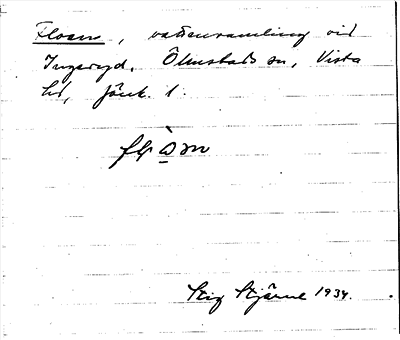 Floen, vattensamling vid
Ingaryd, Ölmstads sn, Vista
hd, Jönk. l.
Stig Stjärne 1934.